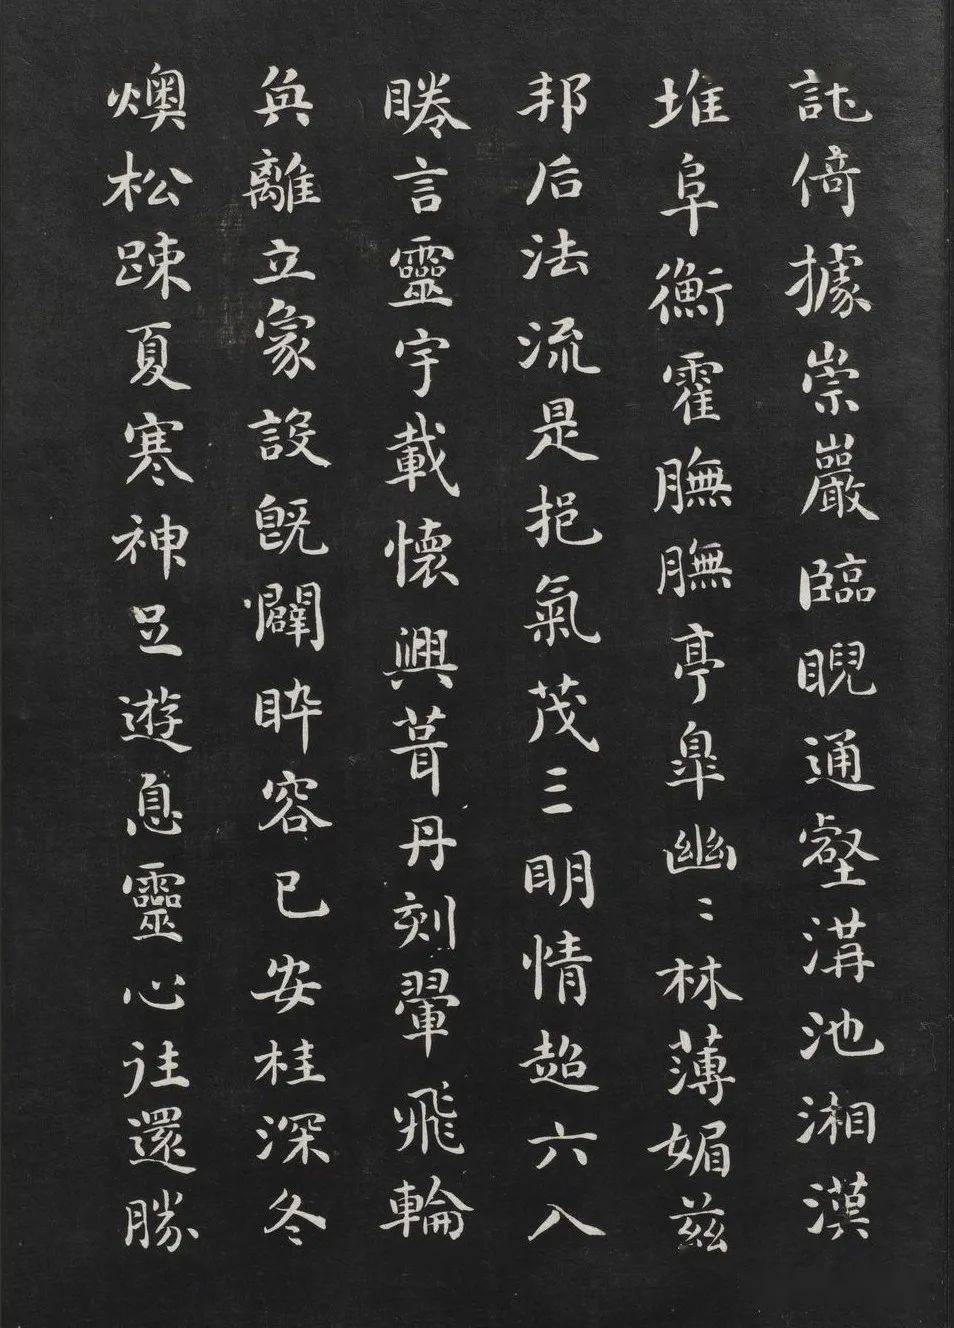 託倚據崇巖臨睨通壑溝池湘漢
堆阜衡霍膴膴亭皐幽〻林薄媚茲
邦后法流是挹氣茂三明情超六入
睠言靈宇載懷興葺丹刻翬飛輪
奐離立象設既闢睟容已安桂深冬
燠松踈夏寒神足遊息靈心往還勝